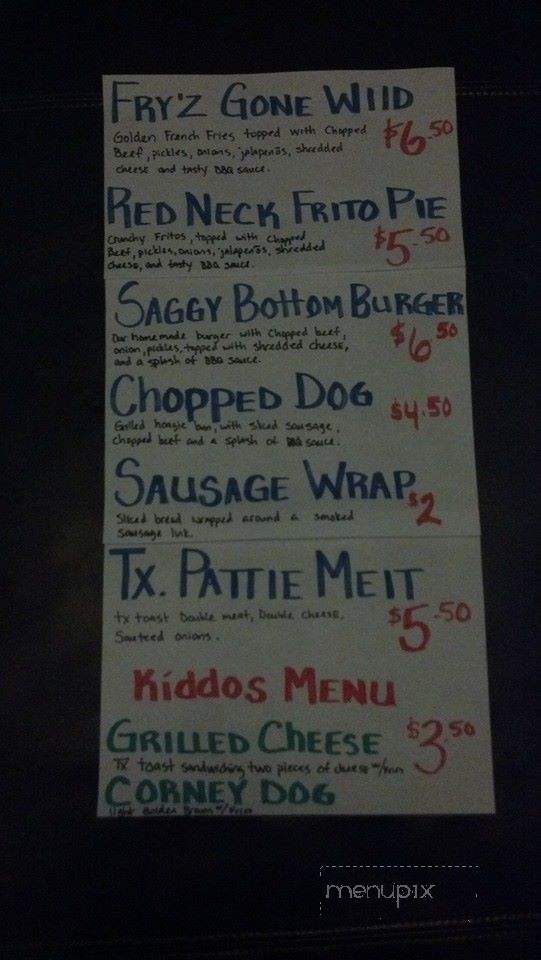 FRY'Z GONE WIID
Golden French Fries topped with Chopped
Beef, pickles, onions, jalapeños, shredded
cheese and tasty BBQ sauce.
$6.50
RED NECK FRITO PIE
Crunchy Fritos, topped with Chopped
Beef, pickles, onions, jalapeños, shredded
cheese, and tasty BBQ sauce.
$5.50
SAGGY BOTTOM BURGER
Our homemade burger with Chopped beef,
onion, pickles, topped with shredded cheese,
and a splash of BBQ sauce.
$6.50
CHOPPED DOG
Grilled hoagie bun, with sliced sausage,
chopped beef and a splash of BBQ sauce.
$4.50
SAUSAGE WRAP
$2
Sliced bread wrapped around a smoked
Sausage link.
TX. PATTIE MEIT
tx toast Double meat, Double cheese,
Sauteed onions.
$5.50
Kiddos MENU
GRILLED CHEESE
$3.50
TX toast sandwiching two pieces of cheese
CORNEY DOG
Golden Brown
menupix